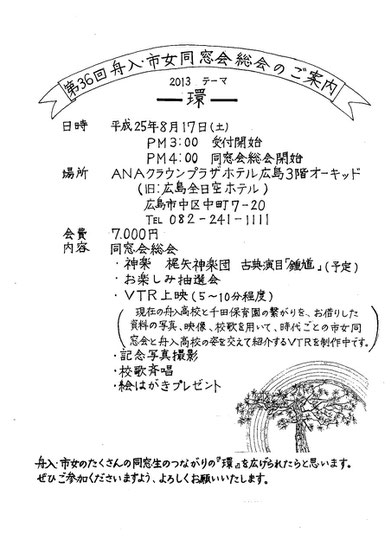 第36回舟入・市女同窓会総会のご案内
2013 テーマ
―環―
日時 平成25年8月17日(土)
PM3:00 受付開始
PM4:00 同窓会総会開始
場所 ANAクラウンプラザホテル広島3階オーキッド
(旧:広島全日空ホテル)
広島市中区中町7-20
TEL 082-241-1111
会費 7.000円
内容 同窓会総会
・神楽 梶矢神楽団 古典演目「鍾馗」(予定)
・お楽しみ抽選会
・VTR上映(5~10分程度)
(現在の舟入高校と千田保育園の繋がりを、お借りした
資料の写真、映像、校歌を用いて、時代ごとの市女同
窓会と舟入高校の姿を交えて紹介するVTRを制作中です。)
・記念写真撮影
・校歌斉唱
・絵はがきプレゼント
舟入・市女のたくさんの同窓生のつながりの『環』を広げられたらと思います。
ぜひご参加くださいますよう、よろしくお願いいたします。